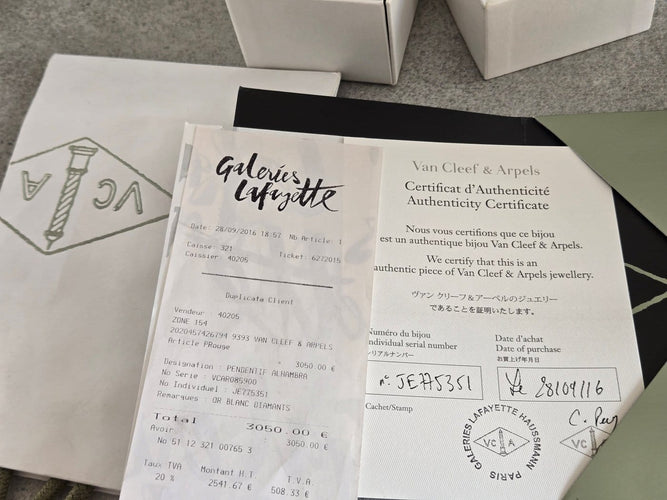 VC A
Galeries
Lafayette
Date: 28/09/2016 18:57 Nb Article: 1
Caisse: 321
Caissier: 40205 Ticket: 6272015
Duplicata Client
Vendeur : 40205
ZONE 154
2020457426794 9393 VAN CLEEF & ARPELS
Article PRouge * 3050.00 €
Designation : PENDENTIF ALHAMBRA
No Serie : VCARO85900
No Individuel : JE775351
Remarques : OR BLANC DIAMANTS
Total 3050.00 €
Avoir 3050.00 €
No 51 12 321 00765 3
Taux TVA Montant H.T T.V.A.
20 % 2541.67 € 508.33 €
Van Cleef & Arpels
Certificat d'Authenticité
Authenticity Certificate
Nous vous certifions que ce bijou
est un authentique bijou Van Cleef & Arpels.
We certify that this is an
authentic piece of Van Cleef & Arpels jewellery.
ヴァン クリーフ&アーペルのジュエリー
であることを証明いたします。
Numéro du bijou
Individual serial number
シリアルナンバー
n°: JE775351
Date d'achat
Date of purchase
お買上げ年月日
Le 28/09/16
Cachet/Stamp
GALERIES LAFAYETTE HAUSSMANN
PARIS
VC A
VC